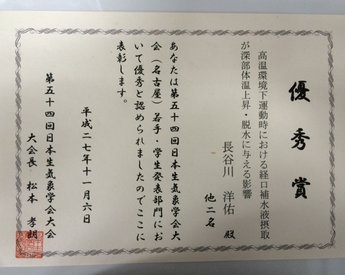 優秀賞
高温環境下運動時における経口補水液摂取
が深部体温上昇・脱水に与える影響
長谷川 洋佑 殿
他二名
あなたは第五十四回日本生気象学会大
会(名古屋)若手・学生発表部門にお
いて優秀と認められましたのでここに
表彰します。
平成二十七年十一月六日
第五十四回日本生気象学会大会
大会長 松本 孝朗